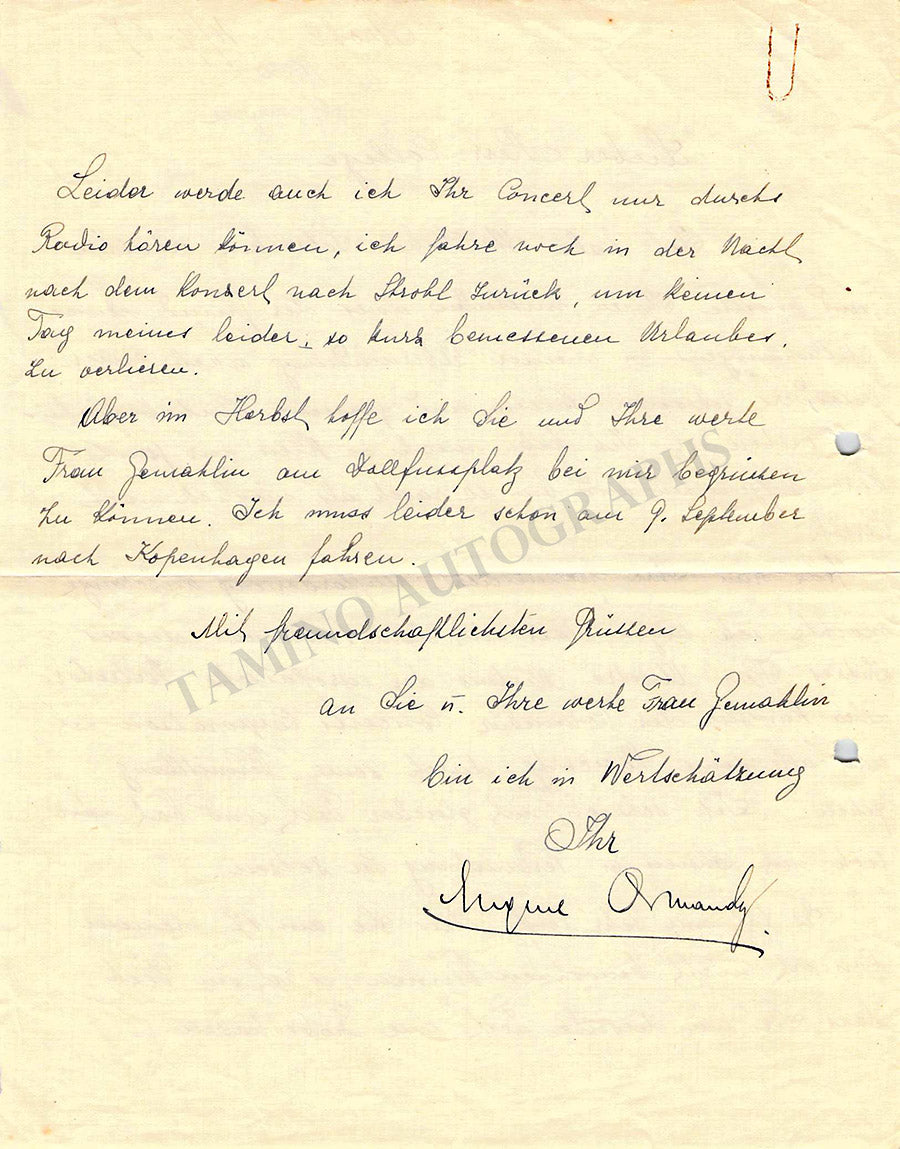 Leider werde auch ich Ihr Concert nur durchs
Radio hören können, ich fahre noch in der Nacht
nach dem Konzert nach Strobl zurück, um keinen
Tag meines leider, so kurz bemessenen Urlaubes,
zu verlieren.
Aber im Herbst hoffe ich Sie und Ihre werte
Frau Gemahlin am Dollfussplatz bei mir begrüssen
zu können. Ich muss leider schon am 9. September
nach Kopenhagen fahren.
Mit freundschaftlichsten Grüssen
an Sie u. Ihre werte Frau Gemahlin
bin ich in Wertschätzung
Ihr
Eugene Ormandy
TAMINO AUTOGRAPHS